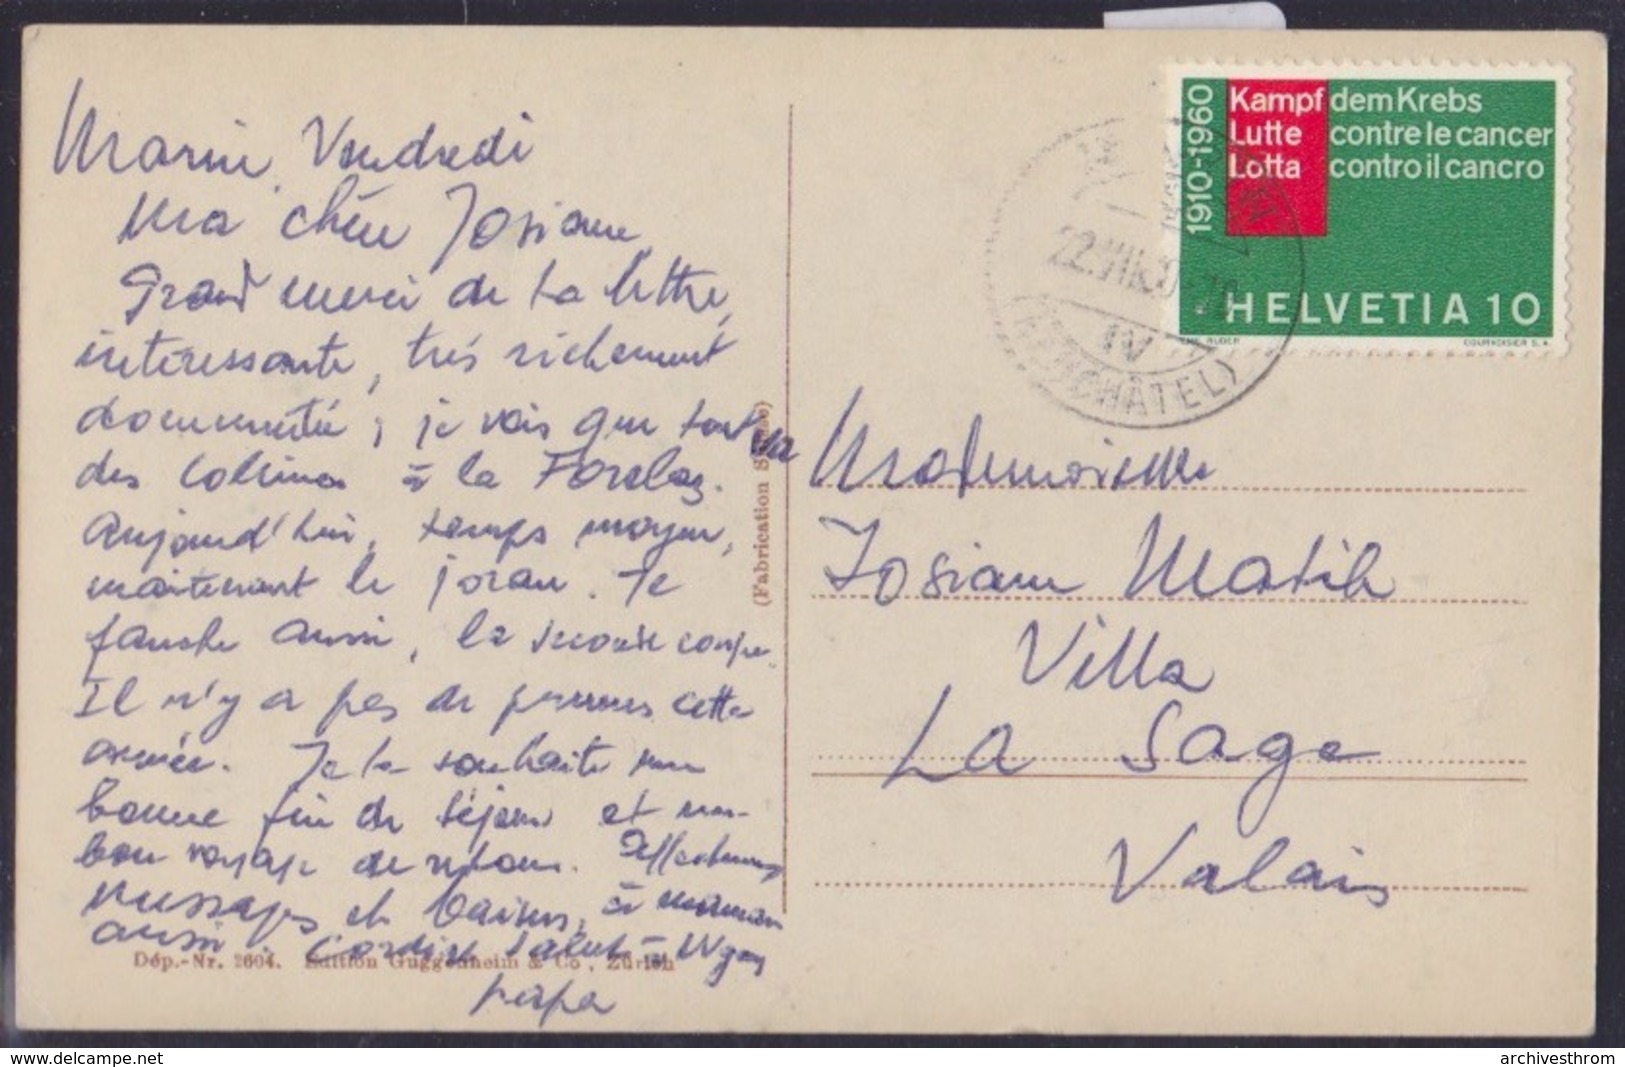 Marin, Vendredi
Ma chère Josiane,
Grand merci de ta lettre,
intéressante, très richement
documentée, je vois que tout va
des Collines à la Forclaz.
Aujourd'hui, temps moyen,
maintenant le joran. Je
fauche aussi, la seconde coupe.
Il n'y a pas de pommes cette
année. Je te souhaite une
bonne fin de séjour et un
bon voyage de retour. Affectueux
messages et baisers, à maman
aussi. Cordial salut à
papa
Dép.-Nr. 2604. Edition Guggenheim & Co., Zürich
(Fabrication Suisse)
1910-1960
Kampf dem Krebs
Lutte contre le cancer
Lotta contro il cancro
HELVETIA 10
EMIL RUDER COURVOISIER S.A.
22.VII
IV
(NEUCHÂTEL)
Mademoiselle
Josiane Matile
Villa
La Sage
Valais
www.delcampe.net
archivesthrom